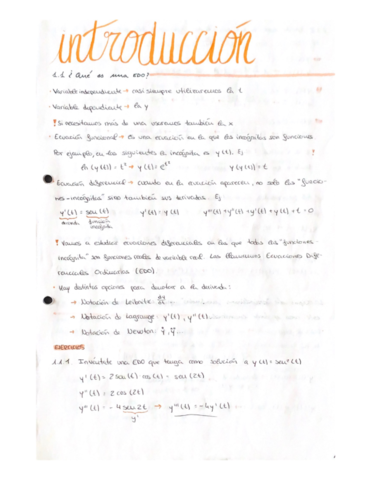 introducción
1.1 ¿Qué es una EDO?
· Variable independiente → casi siempre utilizaremos la t
· Variable dependiente → la y
! Si necesitamos más de una usaremos también la x
· Ecuación funcional → Es una ecuación en la que las incógnitas son funciones.
Por ejemplo, en las siguientes la incógnita es y(t). Ej
ln(y(t)) = t² → y(t) = e^t² y(y(t)) = t
· Ecuación diferencial → cuando en la ecuación aparecen, no solo las "funcio-
nes-incógnitas" sino también sus derivadas. Ej
y'(t) = sen(t) y'(t) = y(t) y'''(t) + y''(t) + y'(t) + y(t) + t = 0
derivada función incógnita
! Vamos a estudiar ecuaciones diferenciales en las que todas las "funciones
incógnita" son funciones reales de variable real. Las llamaremos Ecuaciones Dife-
renciales Ordinarias (EDO).
· Hay distintas opciones para denotar a la derivada:
→ Notación de Leibnitz: dy/dt
→ Notación de Lagrange: y'(t), y''(t)...
→ Notación de Newton: ẏ, ÿ...
EJERCICIOS
1.1.1 Invéntate una EDO que tenga como solución a y(t) = sen²(t)
y'(t) = 2 sen(t) cos(t) = sen(2t)
y''(t) = 2 cos(2t)
y'''(t) = -4 sen 2t → y'''(t) = -4y'(t)
y'